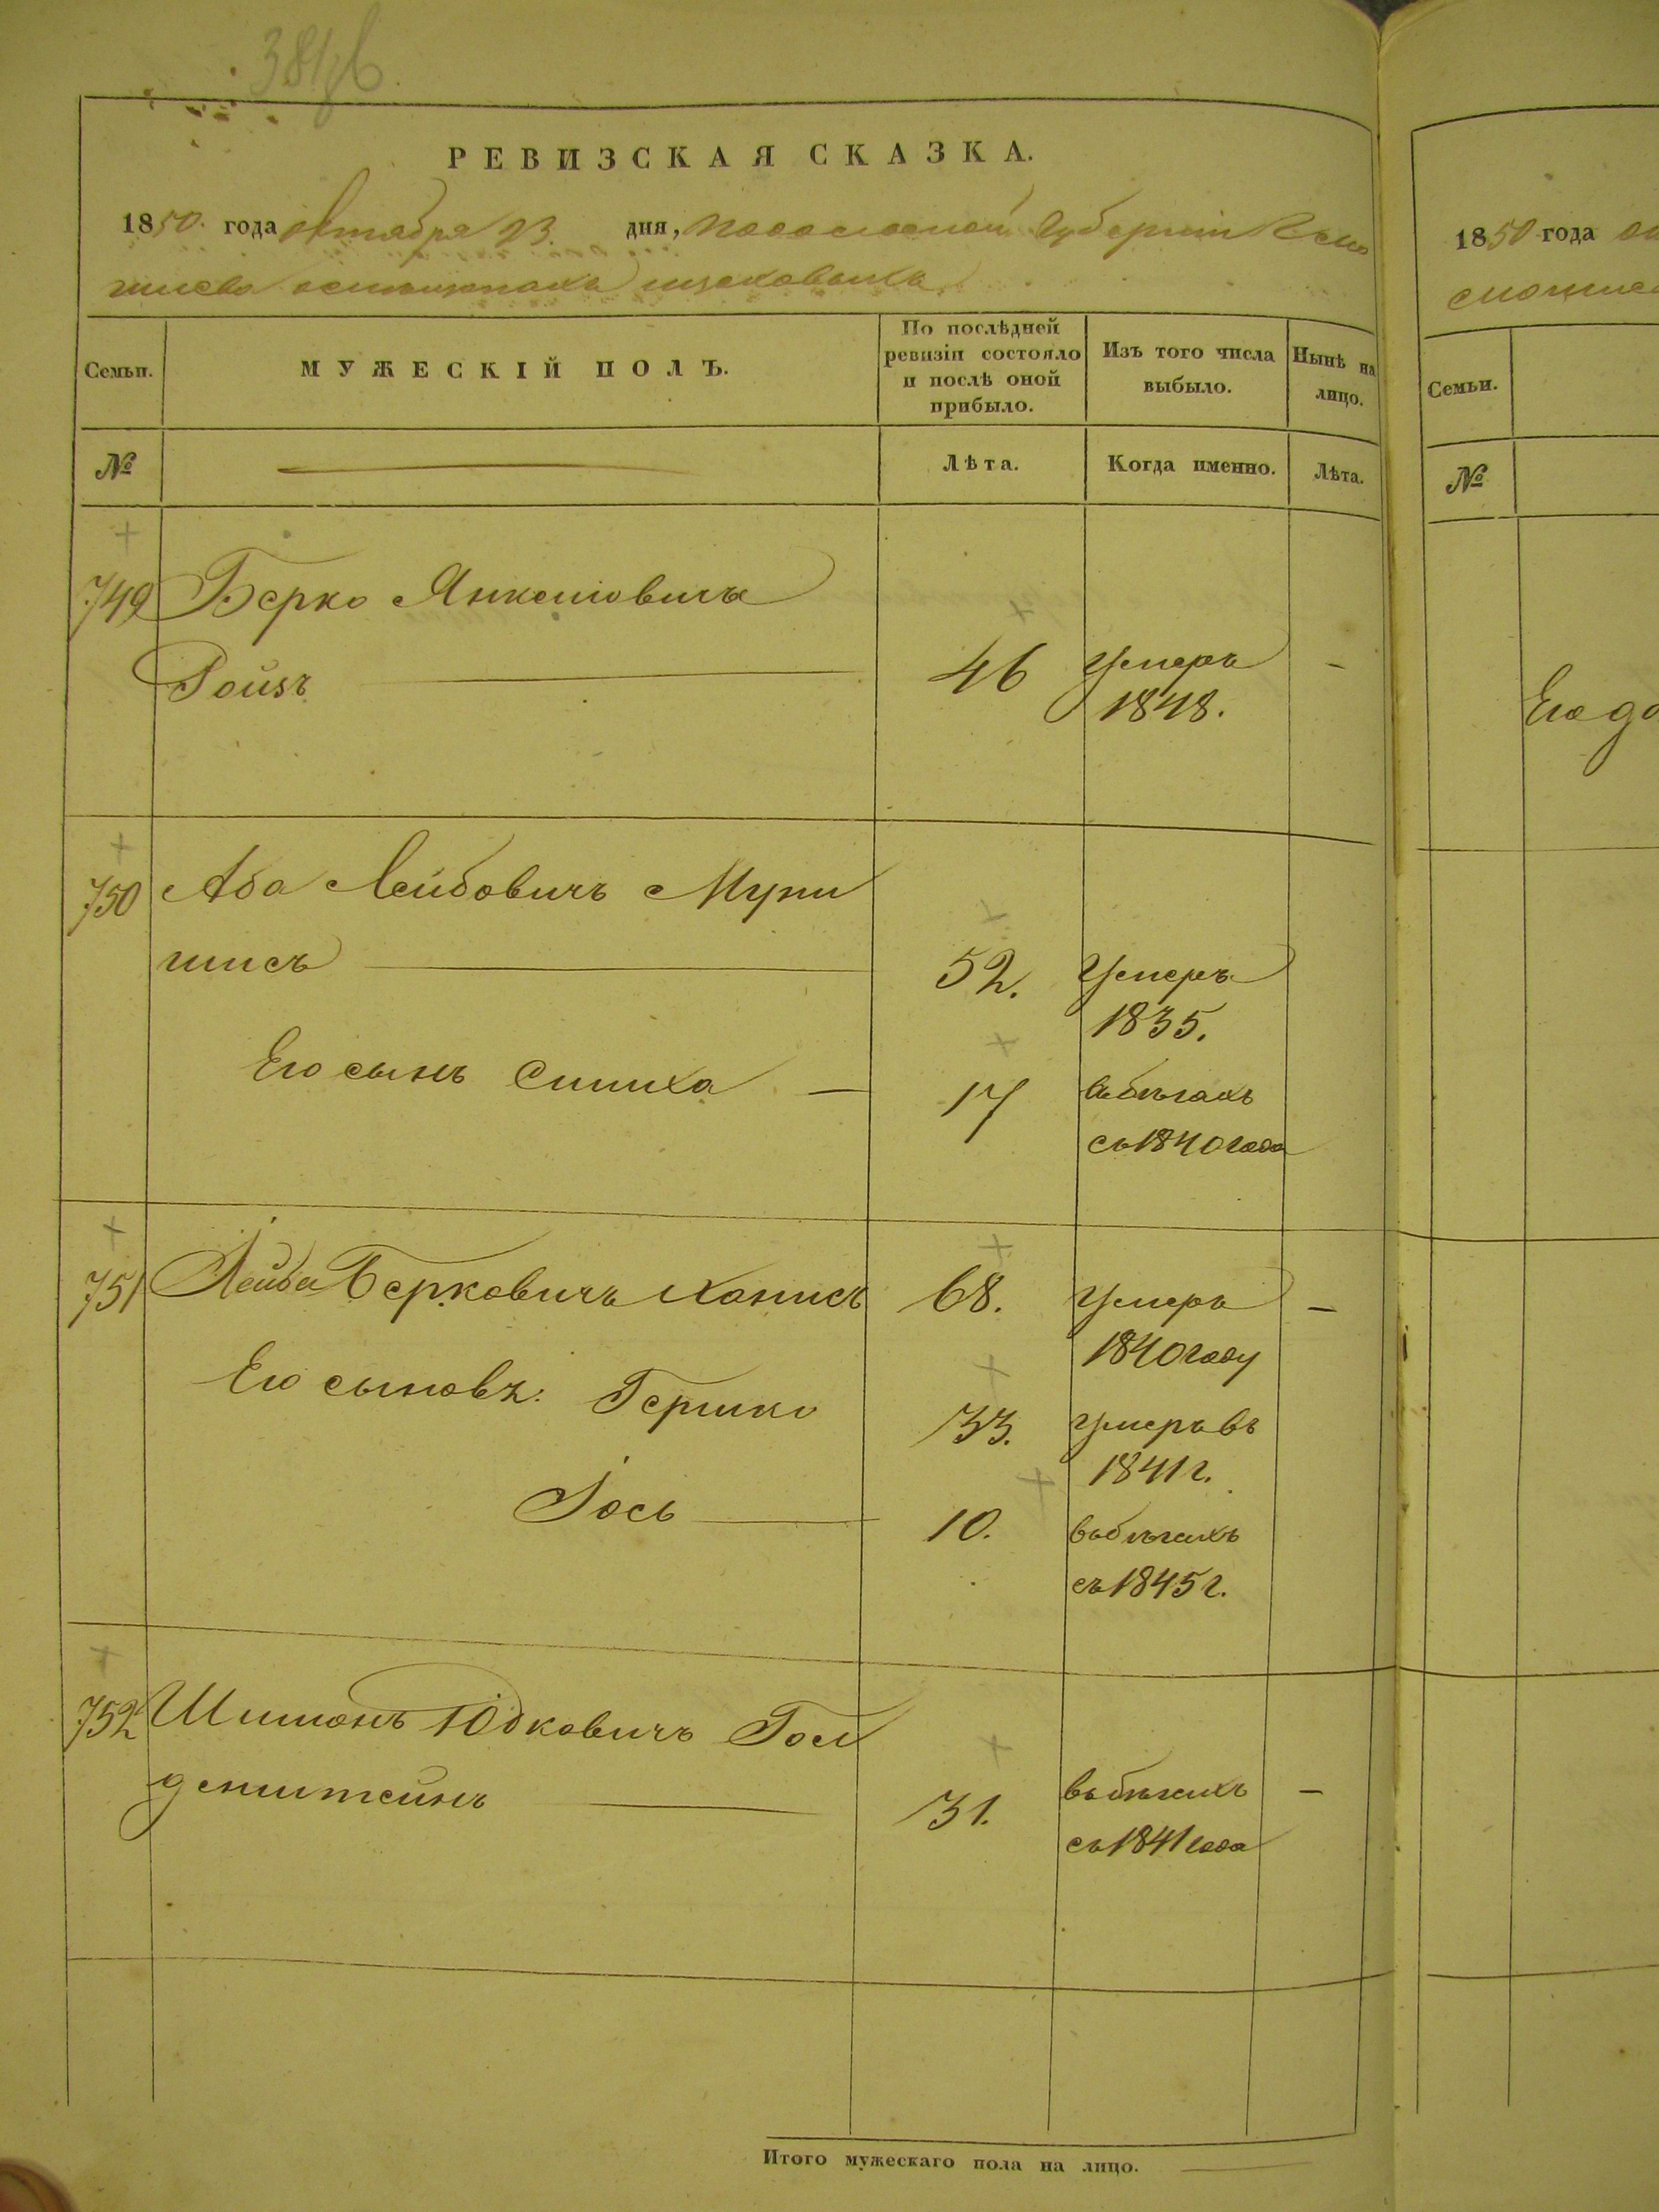 РЕВИЗСКАЯ СКАЗКА.
1850. года октября 23. дня, Подольской Губерніи
Семьи.
МУЖЕСКІЙ ПОЛЪ.
По послѣдней ревизіи состояло и послѣ оной прибыло.
Изъ того числа выбыло.
Нынѣ на лицо.
№
Лѣта.
Когда именно.
Лѣта.
749 Берко Янкелiовичъ
Ройзъ 46 умеръ –
1848.
750 Аба Лейбовичъ Мупи
шисъ 52. Умеръ
1835.
Его сынъ Симха – 17 въ бѣгахъ
съ 1840 года
751 Лейба Берковичъ 68. Умеръ –
1840 году
Его сыновъя: Гершко 33. умеръ въ
1841 г.
Іось 10. въ бѣгахъ
съ 1845 г.
752 Шимонъ Юдковичъ Гол
денштейнъ 31. въ бѣгахъ –
съ 1841 года
Итого мужескаго пола на лицо.
1850 года
Семьи.
№
Его